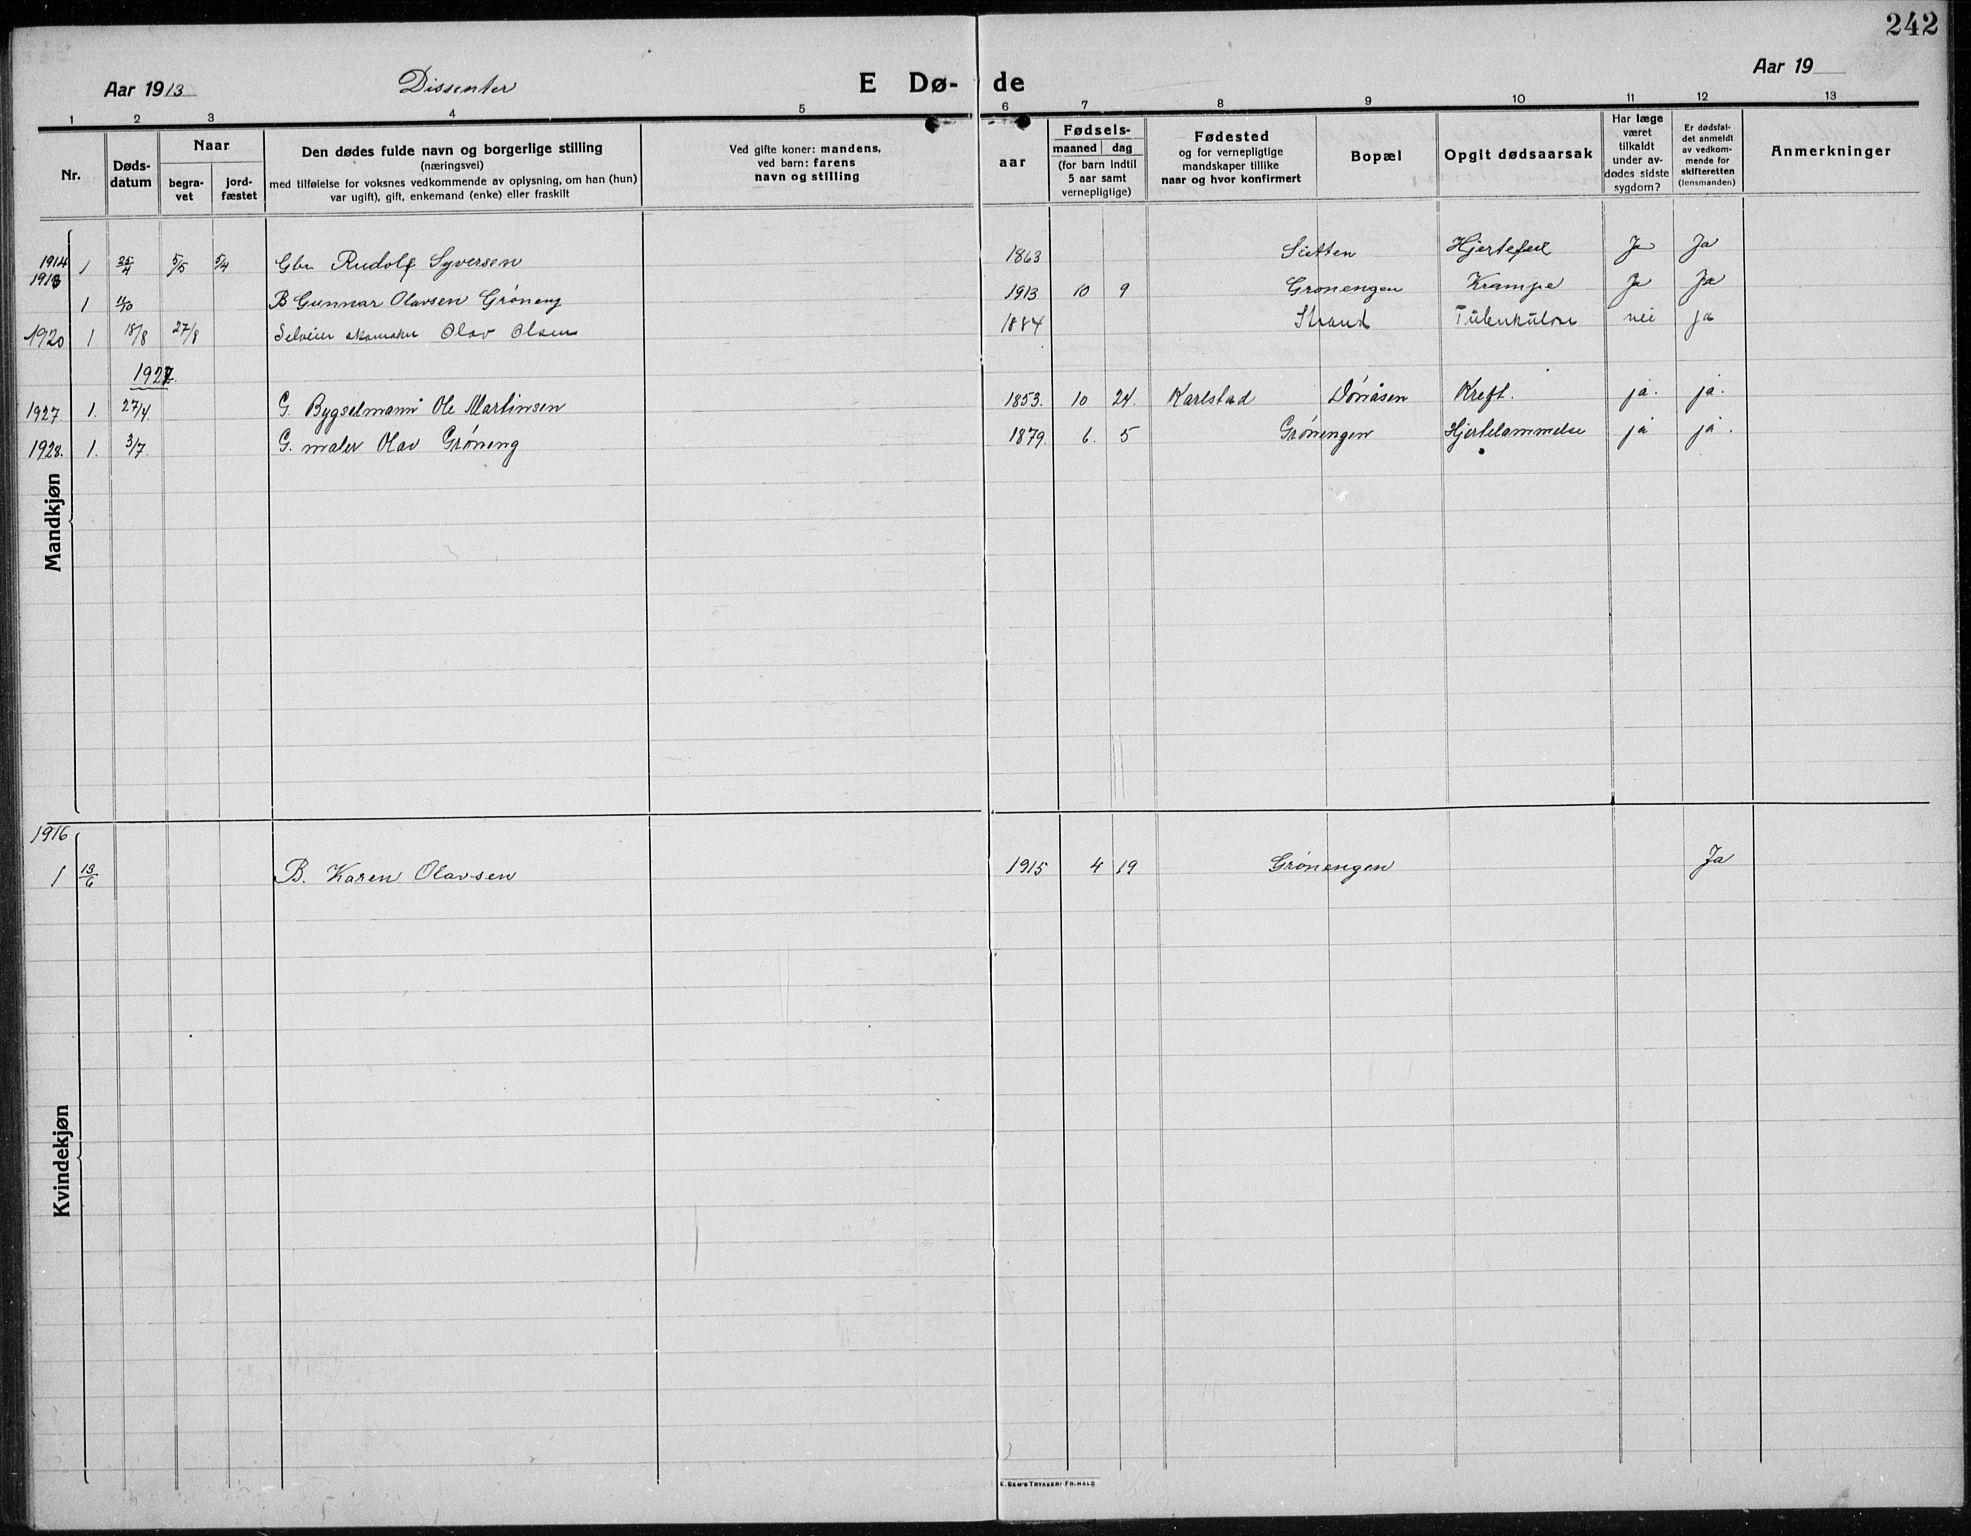 242
Aar 1913 Dissenter E Dø- de Aar 19
1 2 3 4 5 6 7 8 9 10 11 12 13
Nr.
Døds-
datum
Naar
begra-
vet
jord-
fæstet
Den dødes fulde navn og borgerlige stilling
(næringsvei)
med tilføielse for voksnes vedkommende av oplysning, om han (hun)
var ugift), gift, enkemand (enke) eller fraskilt
Ved gifte koner: mandens,
ved barn: farens
navn og stilling
aar
Fødsels-
maaned dag
(for barn indtil
5 aar samt
vernepligtige)
Fødested
og for vernepligtige
mandskaper tillike
naar og hvor konfirmert
Bopæl
Opgit dødsaarsak
Har læge
været
tilkaldt
under av-
dødes sidste
sygdom?
Er dødsfal-
det anmeldt
av vedkom-
mende for
skifteretten
(lensmanden)
Anmerkninger
Mandkjøn
1914 1 25/4 5/5 5/4 Gbr Rudolf Syversen 1863 Sletten Hjertefeil Ja Ja
1913
1 11/10 B Gunnar Olavsen Grøneng 1913 10 9 Grønengen Krampe Ja Ja
1920 1 18/8 27/8 Selveier skomaker Olav Olsen 1884 Strand Tuberkulose nei ja
1927
1927. 1. 27/4 G. Bygselmann Ole Martinsen 1853. 10 24. Karlstad Dønåsen Kreft. ja. ja.
1928. 1. 3/7. G. maler Olav Grøneng 1879. 6. 5 Grønengen Hjertelammelse ja ja.
Kvindekjøn
1916
1 13/6 B. Karen Olavsen 1915 4 19 Grønengen Ja
E. SEM'S TRYKKERI FR.HALD